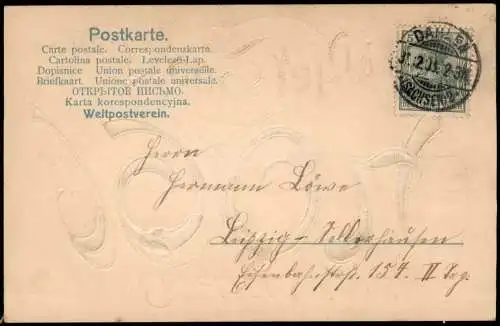 Postkarte.
Carte postale. Correspondenzkarta.
Cartolina postale. Levelező-Lap.
Dopisnice Union postale universelle.
Briefkaart. Unione postale universale.
ОТКРЫТОЕ ПИСЬМО.
Karta korespondencyjna.
Weltpostverein.
DAHLEN
Herrn
Hermann Löwe
Leipzig-Sellerhausen
Eisenbahnstrß. 154. II Etg.